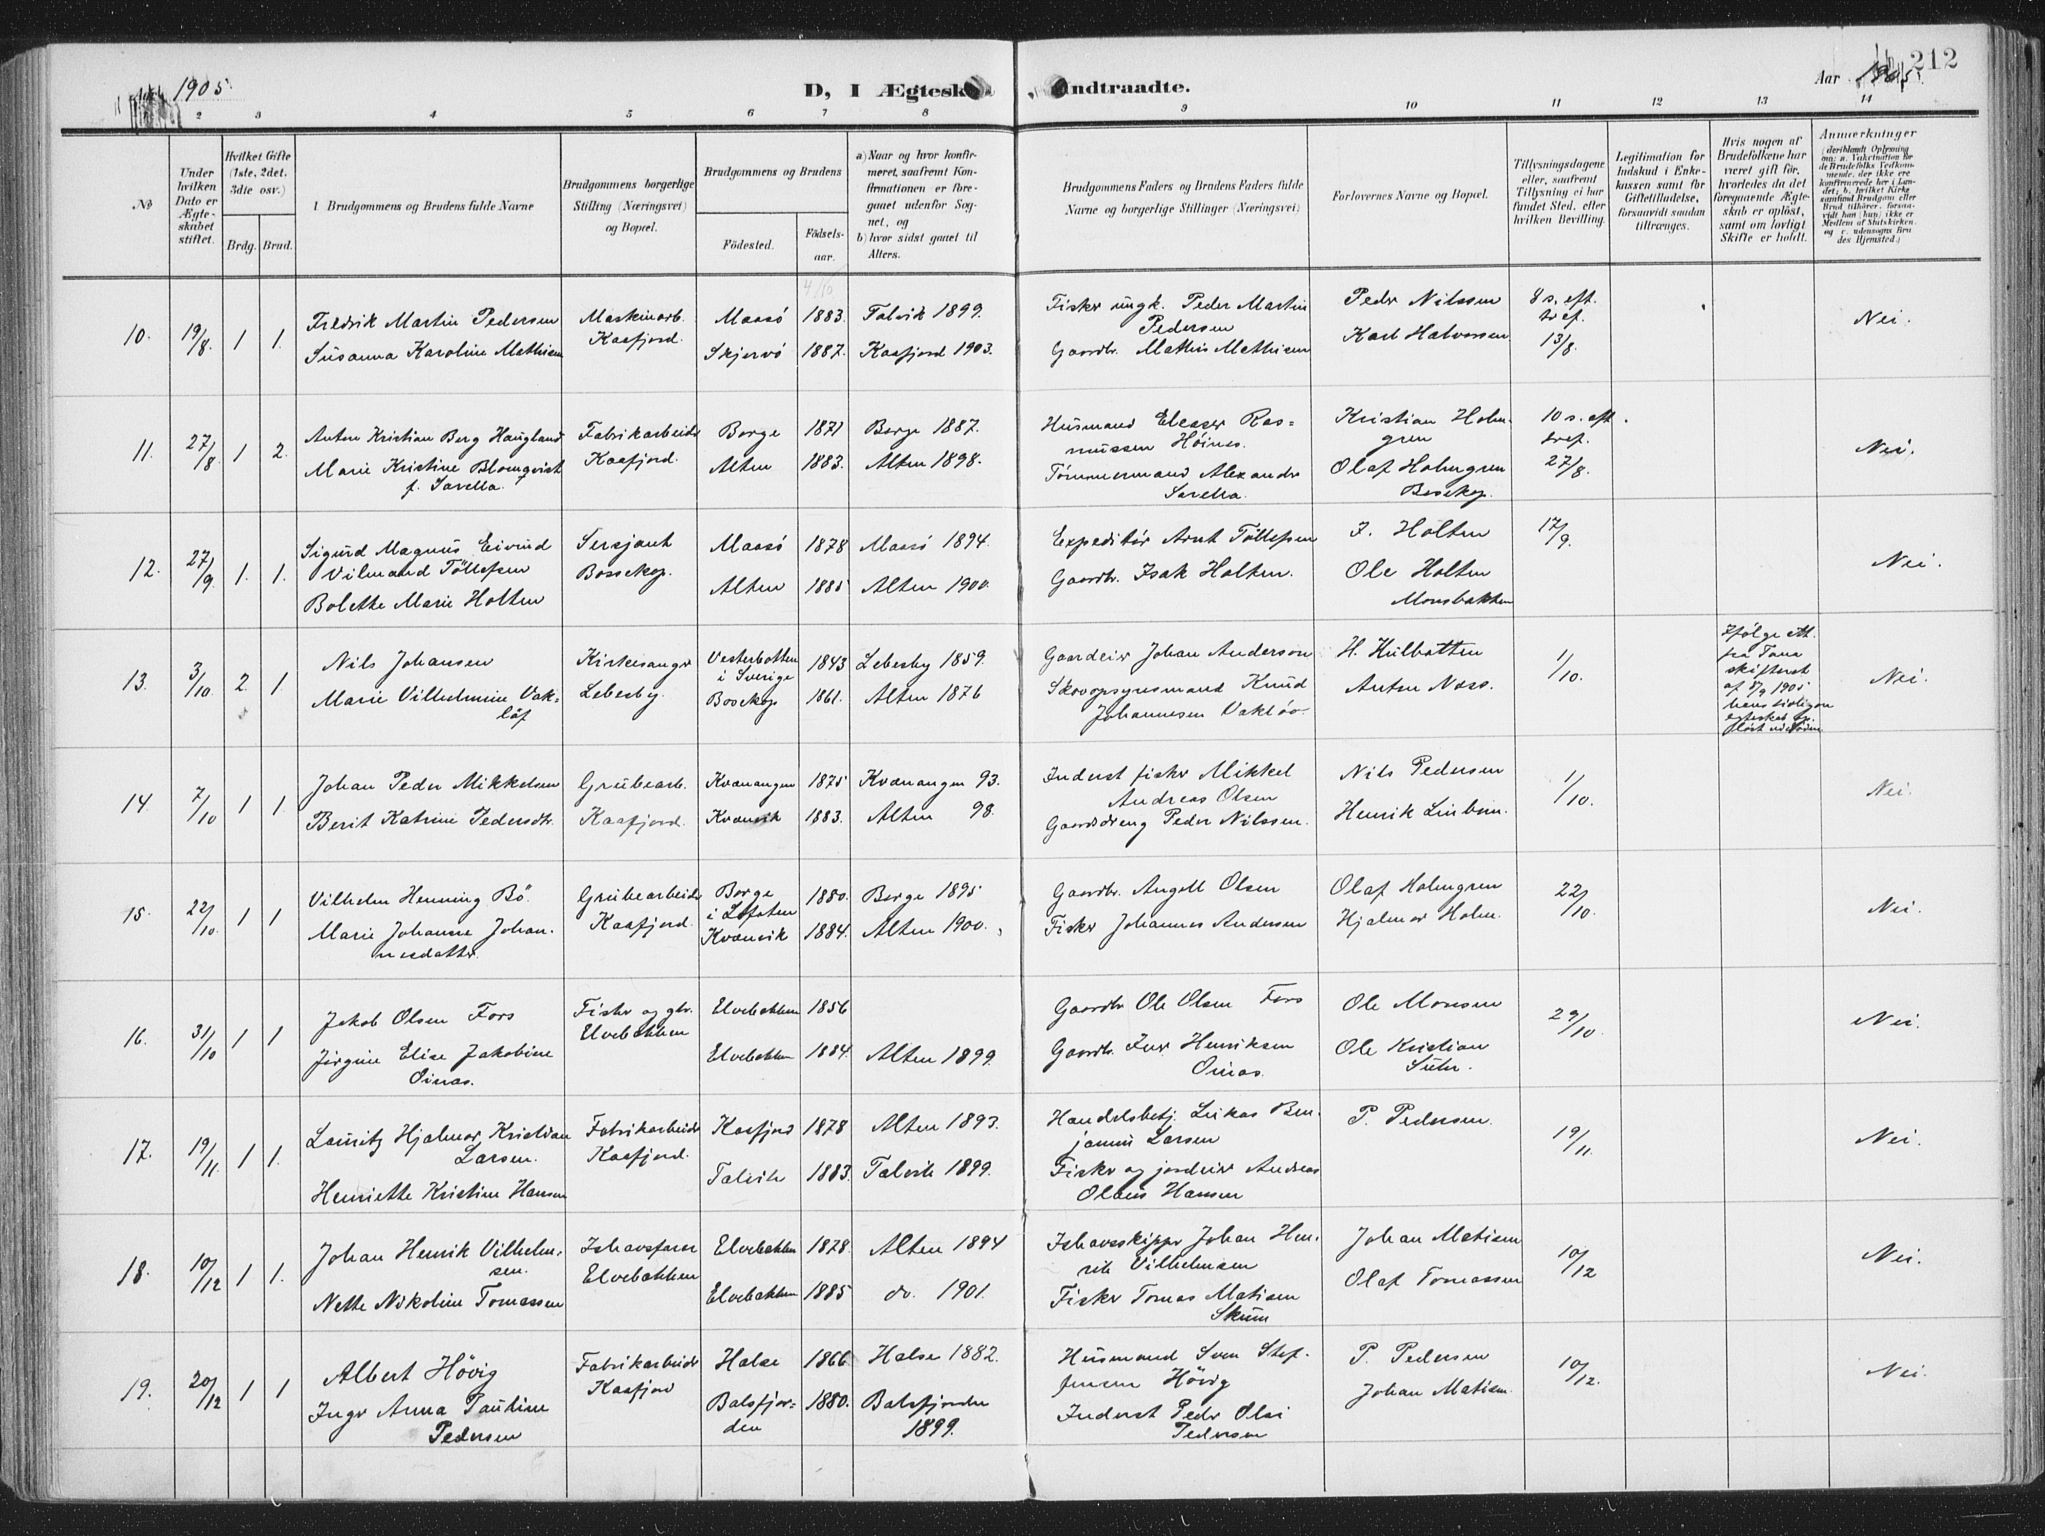 Aar 1905.
D, I Ægtesk
Indtraadte.
Aar 1905.
212
2 3 4 5 6 7 8 9 10 11 12 13 14
No
Under hvilken Dato er Ægteskabet stiftet.
Hvilket Gifte (1ste, 2det, 3die osv.)
Brdg. Brud.
Brudgommens og Brudens fulde Navne
Brudgommens borgerlige Stilling (Næringsvei) og Bopæl.
Brudgommens og Brudens
Födested.
Födsels-aar.
a) Naar og hvor konfirmeret, saafremt Konfirmationen er foregaaet udenfor Sognet, og
b) hvor sidst gaaet til Alters.
Brudgommens Faders og Brudens Faders fulde Navne og borgerlige Stillinger (Næringsvei)
Forlovernes Navne og Bopæl.
Tillysningsdagene eller, saafremt Tillysning ei har fundet Sted, efter hvilken Bevilling.
Legitimation for Indskud i Enkekassen samt for Giftetilladelse, forsaavidt saadan tiltrænges.
Hvis nogen af Brudefolkene har været gift för, hvorledes da det foregaaende Ægteskab er oplöst, samt om lovligt Skifte er holdt.
Anmerkninger
10. 19/8 1 1.
Fredrik Martin Pedersen
Susanna Karoline Mathisen
Maskinarb.
Kaafjord.
Maasö 1883. Talvik 1899.
Skjervö 1887. Kaafjord 1903.
Fisker ungk. Peder Martin
Pedersen
Gaardbr. Mathis Mathisen
Peder Nilssen
Karl Halvorsen
8 s. eft.
tref.
13/8.
Nei.
11. 27/8 1 2.
Anton Kristian Berg Haugland
Marie Kristine Blomqvist
f. Savella.
Fabrikarbeider
Kaafjord.
Borge 1871 Borge 1887.
Alten 1883. Alten 1898.
Husmand Eleaser Ras=
mussen Höines.
Tömmermand Alexander
Savella.
Kristian Holm-
gren
Olaf Holmgren
Bossekop.
10 s. eft.
tref.
27/8.
Nei.
12. 27/9 1. 1.
Sigurd Magnus Eivind
Vilmand Töllefsen
Bolette Marie Holten
Sersjant
Bossekop.
Maasö 1878 Maasö 1894.
Alten 1885 Alten 1900.
Expeditör Arnt Töllefsen
Gaardbr. Isak Holten.
I. Holten
Ole Holten
Monsbakken
17/9.
Nei.
13. 3/10 2. 1.
Nils Johansen
Marie Vilhelmine Vak-
löf
Kirkesanger
Lebesby.
Vesterbotten
i Sverige 1843 Lebesby 1859.
Bossekop 1861. Alten 1876
Gaardeier Johan Anderson
Skovopsynsmand Knud
Johannesen Vaklöv.
H. Hulbatten
Anton Næss.
1/10.
Ifölge att.
fra Tana
skifteret
af 8/9 1905
hans tidligere
egteskab op-
löst ved döden
Nei.
14. 7/10 1 1.
Johan Peder Mikkelsen
Berit Katrine Pedersdtr.
Grubearb.
Kaafjord.
Kvænangen 1875 Kvænangen 93.
Kvænvik 1883. Alten 98.
Inderst fisker Mikkel
Andreas Olsen
Gaardsdreng Peder Nilssen.
Nils Pedersen
Henrik Linbom.
1/10.
Nei.
15. 22/10. 1 1
Vilhelm Henning Bö.
Marie Johanne Johan-
nesdatter.
Grubearbeider
Kaafjord.
Borge
i Lofoten 1880. Borge 1895
Kvænvik 1884. Alten 1900.
Gaardbr. Angell Olsen
Fisker Johannes Andersen
Olaf Holmgren
Hjalmar Holm.
22/10.
Nei.
16. 31/10 1 1
Jakob Olsen Fors
Jörgine Elise Jakobine
Oinas.
Fisker og gbr.
Elvebakken
Elvebakken 1856
Elvebakken 1884. Alten 1899.
Gaardbr Ole Olsen Fors
Gaardbr. Iver Henriksen
Oinas.
Ole Monsen
Ole Kristian
Suter.
29/10.
Nei.
17. 19/11. 1 1.
Lauritz Hjalmar Kristian
Larsen.
Henriette Kristine Hansen
Fabrikarbeider
Kaafjord.
Kaafjord 1878 Alten 1893.
Talvik 1883. Talvik 1899.
Handelsbetj. Lukas Ben-
jamin Larsen
Fisker og jordeier Andreas
Olaus Hansen
P. Pedersen.
19/11.
Nei.
18. 10/12 1 1.
Johan Henrik Vilhelm-
sen.
Nette Nikoline Tomassen
Ishavsfarer
Elvebakken
Elvebakken 1878. Alten 1894
Elvebakken 1885 do. 1901.
Ishavsskipper Johan Hen-
rik Vilhelmsen
Fisker Tomas Matisen
Skum
Johan Matisen
Olaf Tomassen
10/12
Nei.
19. 20/12 1 1
Albert Hövig
Inger Anna Pauline
Pedersen
Fabrikarbeider
Kaafjord
Halse 1866. Halse 1882.
Balsfjor-
den 1880. Balsfjorden
1899.
Husmand Sven Stef-
fensen Hövig
Inderst Peder Olai
Pedersen
P. Pedersen
Johan Matisen.
10/12.
Nei.